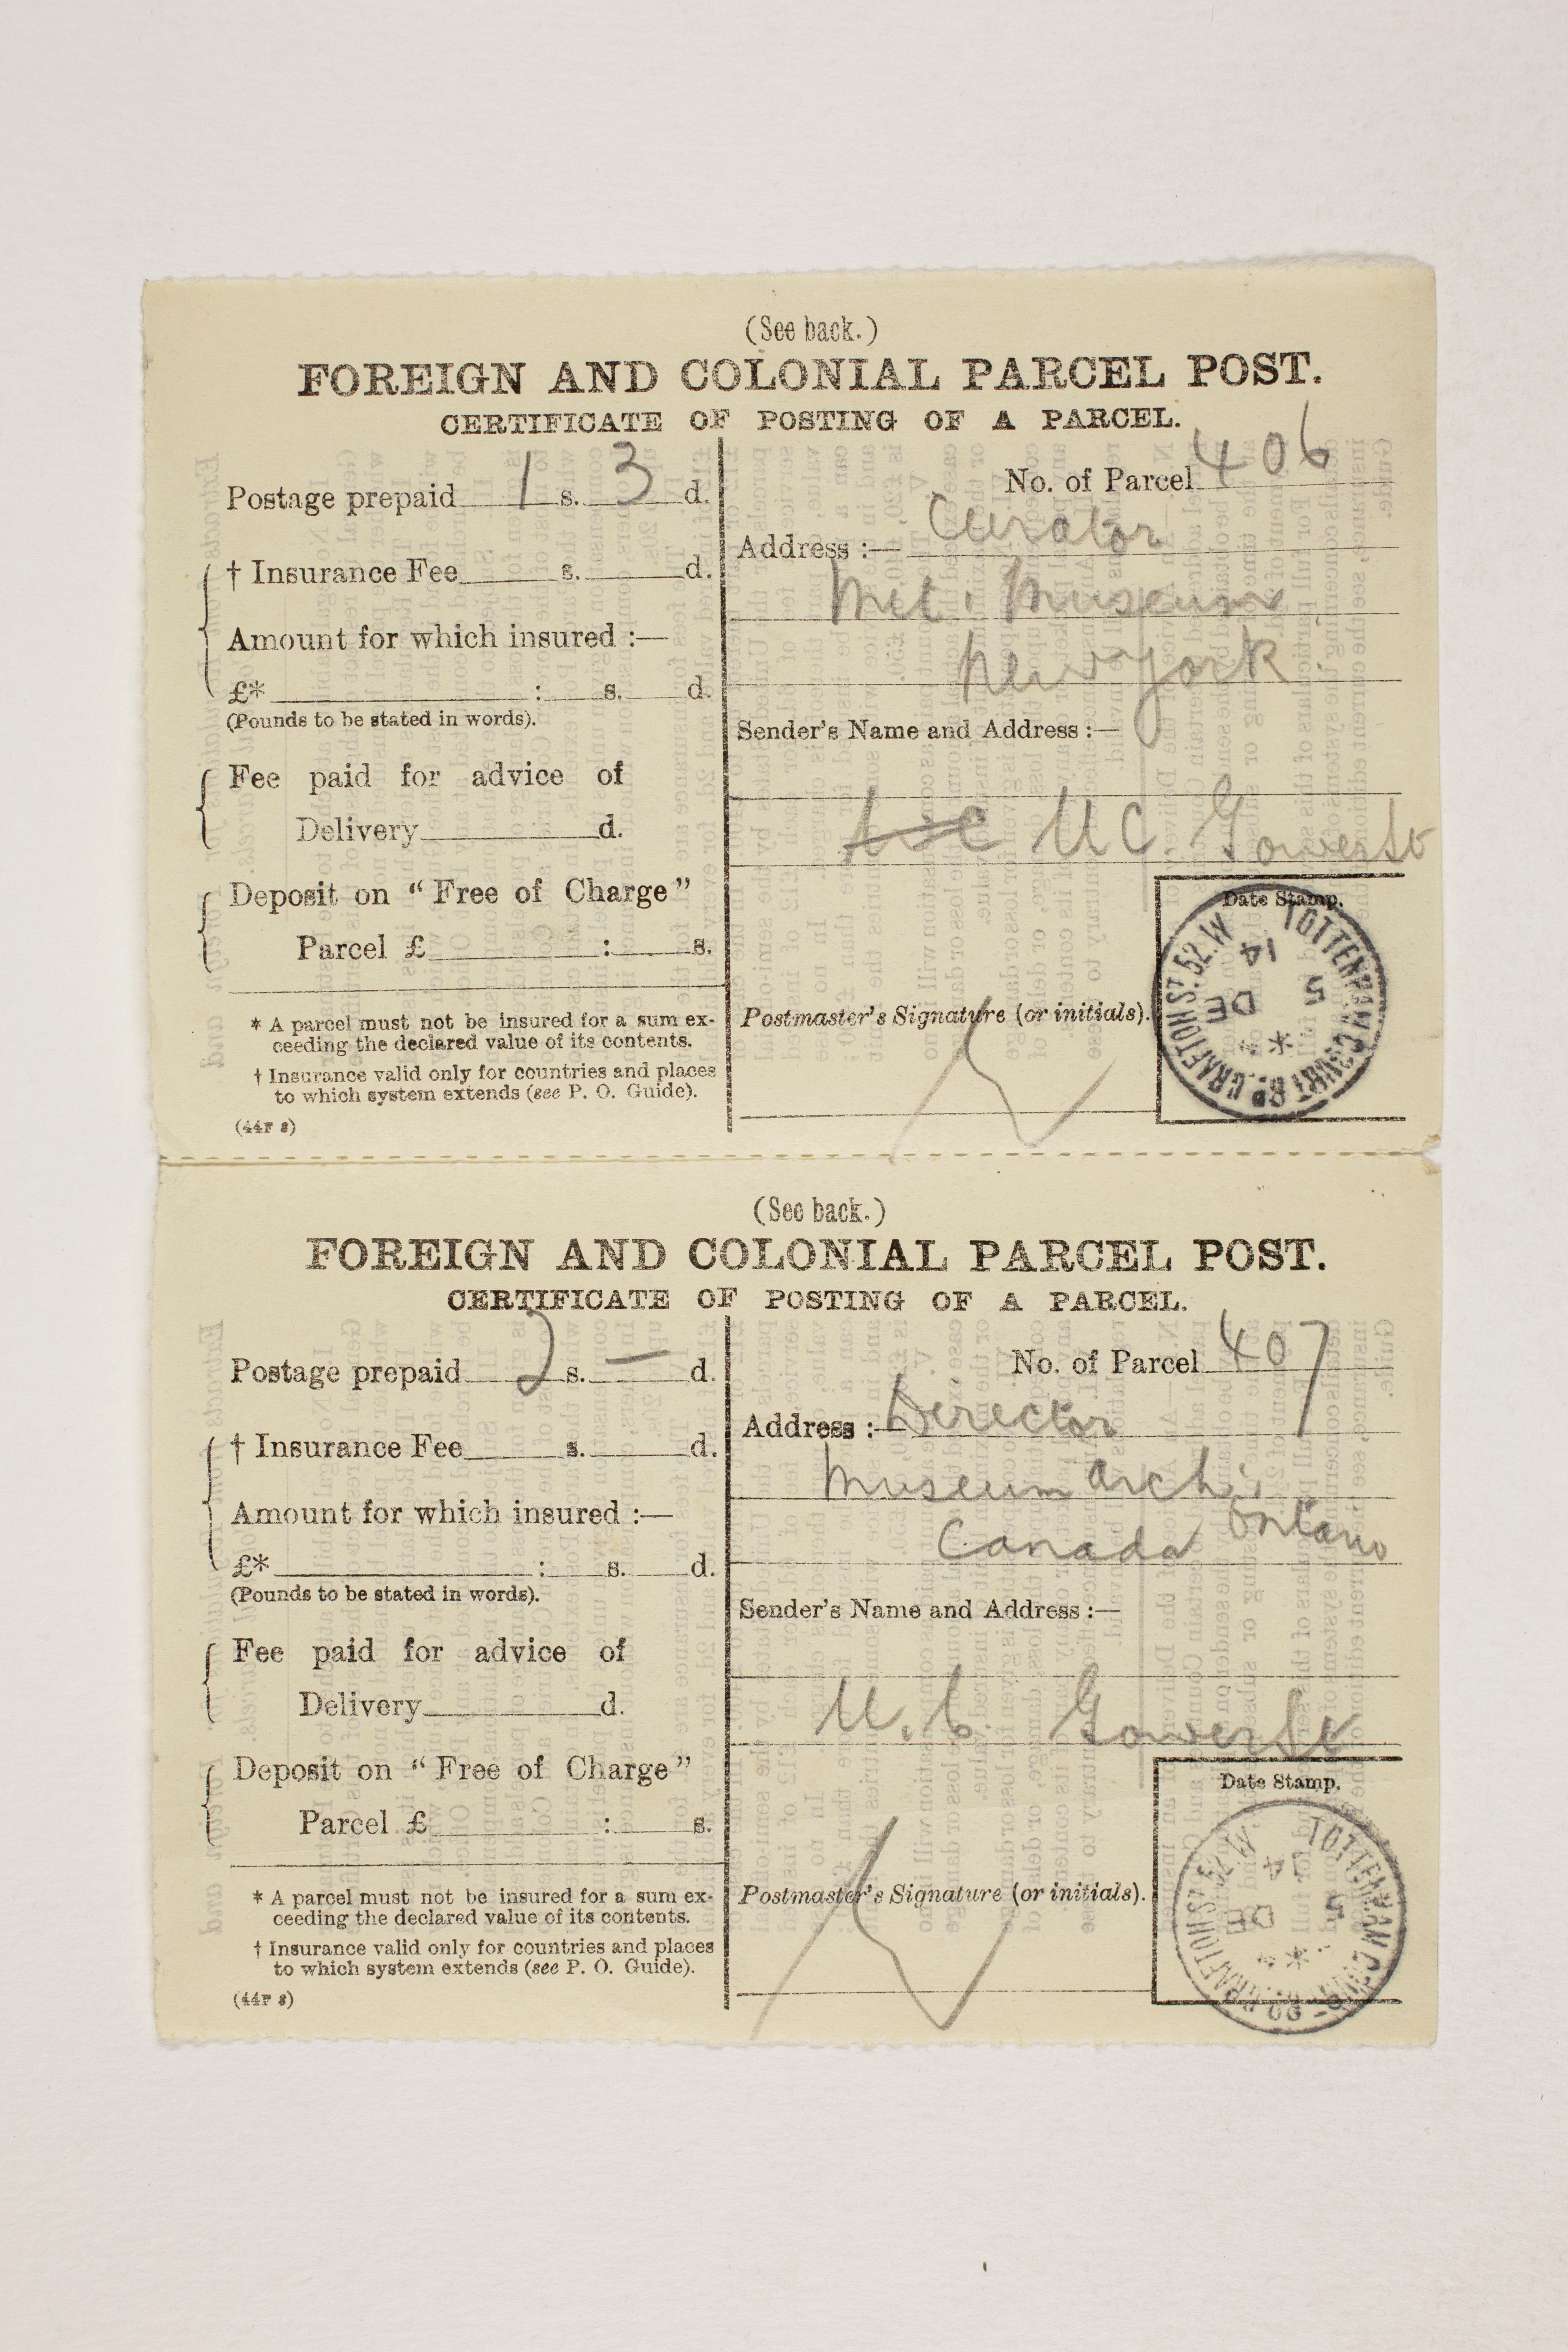 (See back.)
FOREIGN AND COLONIAL PARCEL POST.
CERTIFICATE OF POSTING OF A PARCEL.
Postage prepaid 1 s. 3 d.
† Insurance Fee s. d.
Amount for which insured :—
£* : s. d.
(Pounds to be stated in words).
Fee paid for advice of
Delivery d.
Deposit on "Free of Charge"
Parcel £ : s.
* A parcel must not be insured for a sum ex-
ceeding the declared value of its contents.
† Insurance valid only for countries and places
to which system extends (see P. O. Guide).
(44F s)
No. of Parcel 406
Address :— Curator
Met. Museum
New York.
Sender's Name and Address :—
U C. Gower St
Date Stamp.
TOTTENHAM COURT RD. GRAFTON ST. 52. W
5
DE
14
Postmaster's Signature (or initials).
(See back.)
FOREIGN AND COLONIAL PARCEL POST.
CERTIFICATE OF POSTING OF A PARCEL.
Postage prepaid 2 s. — d.
† Insurance Fee s. d.
Amount for which insured :—
£* : s. d.
(Pounds to be stated in words).
Fee paid for advice of
Delivery d.
Deposit on "Free of Charge"
Parcel £ : s.
* A parcel must not be insured for a sum ex-
ceeding the declared value of its contents.
† Insurance valid only for countries and places
to which system extends (see P. O. Guide).
(44F s)
No. of Parcel 407
Address :— Director
Museum Arch:
Ontario
Canada
Sender's Name and Address :—
U. C. Gower St
Date Stamp.
TOTTENHAM COURT RD. GRAFTON ST. 52. W
5
DE
14
Postmaster's Signature (or initials).